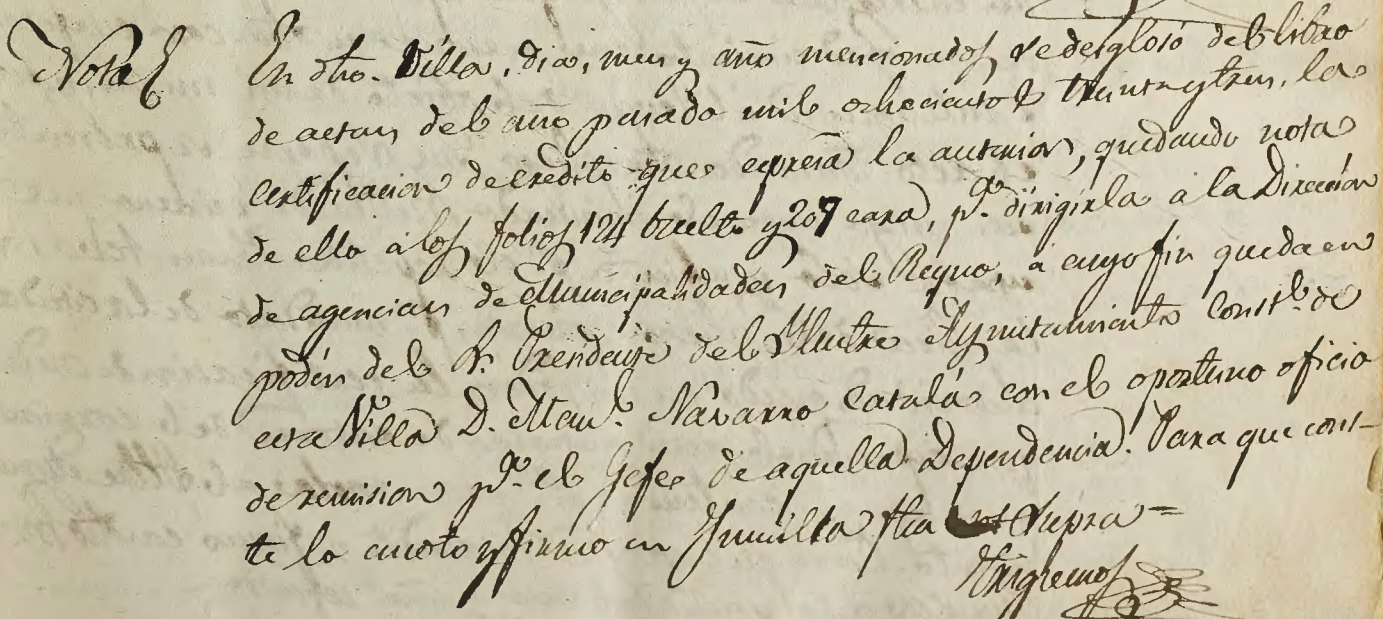 Nota En dho. Villa, dia, mes y año mencionados, se desglosó del libro
de actas del año pasado mil ochocientos treinta y tres, la
certificacion de credito que expresa la anterior, quedando nota
de ello á los folios 124 buelto y 207 cara, pa. dirigirla a la Direccion
de agencias de Municipalidades del Reyno, a cuyo fin queda en
poder del Sr. Presidente del Yllustre Ayuntamiento Constl. de
esta Villa D. Manl. Navarro Catalá con el oportuno oficio
de remision pa. el Gefe de aquella Dependencia. Para que cons-
te lo anoto y firmo en Jumilla fha ut supra =